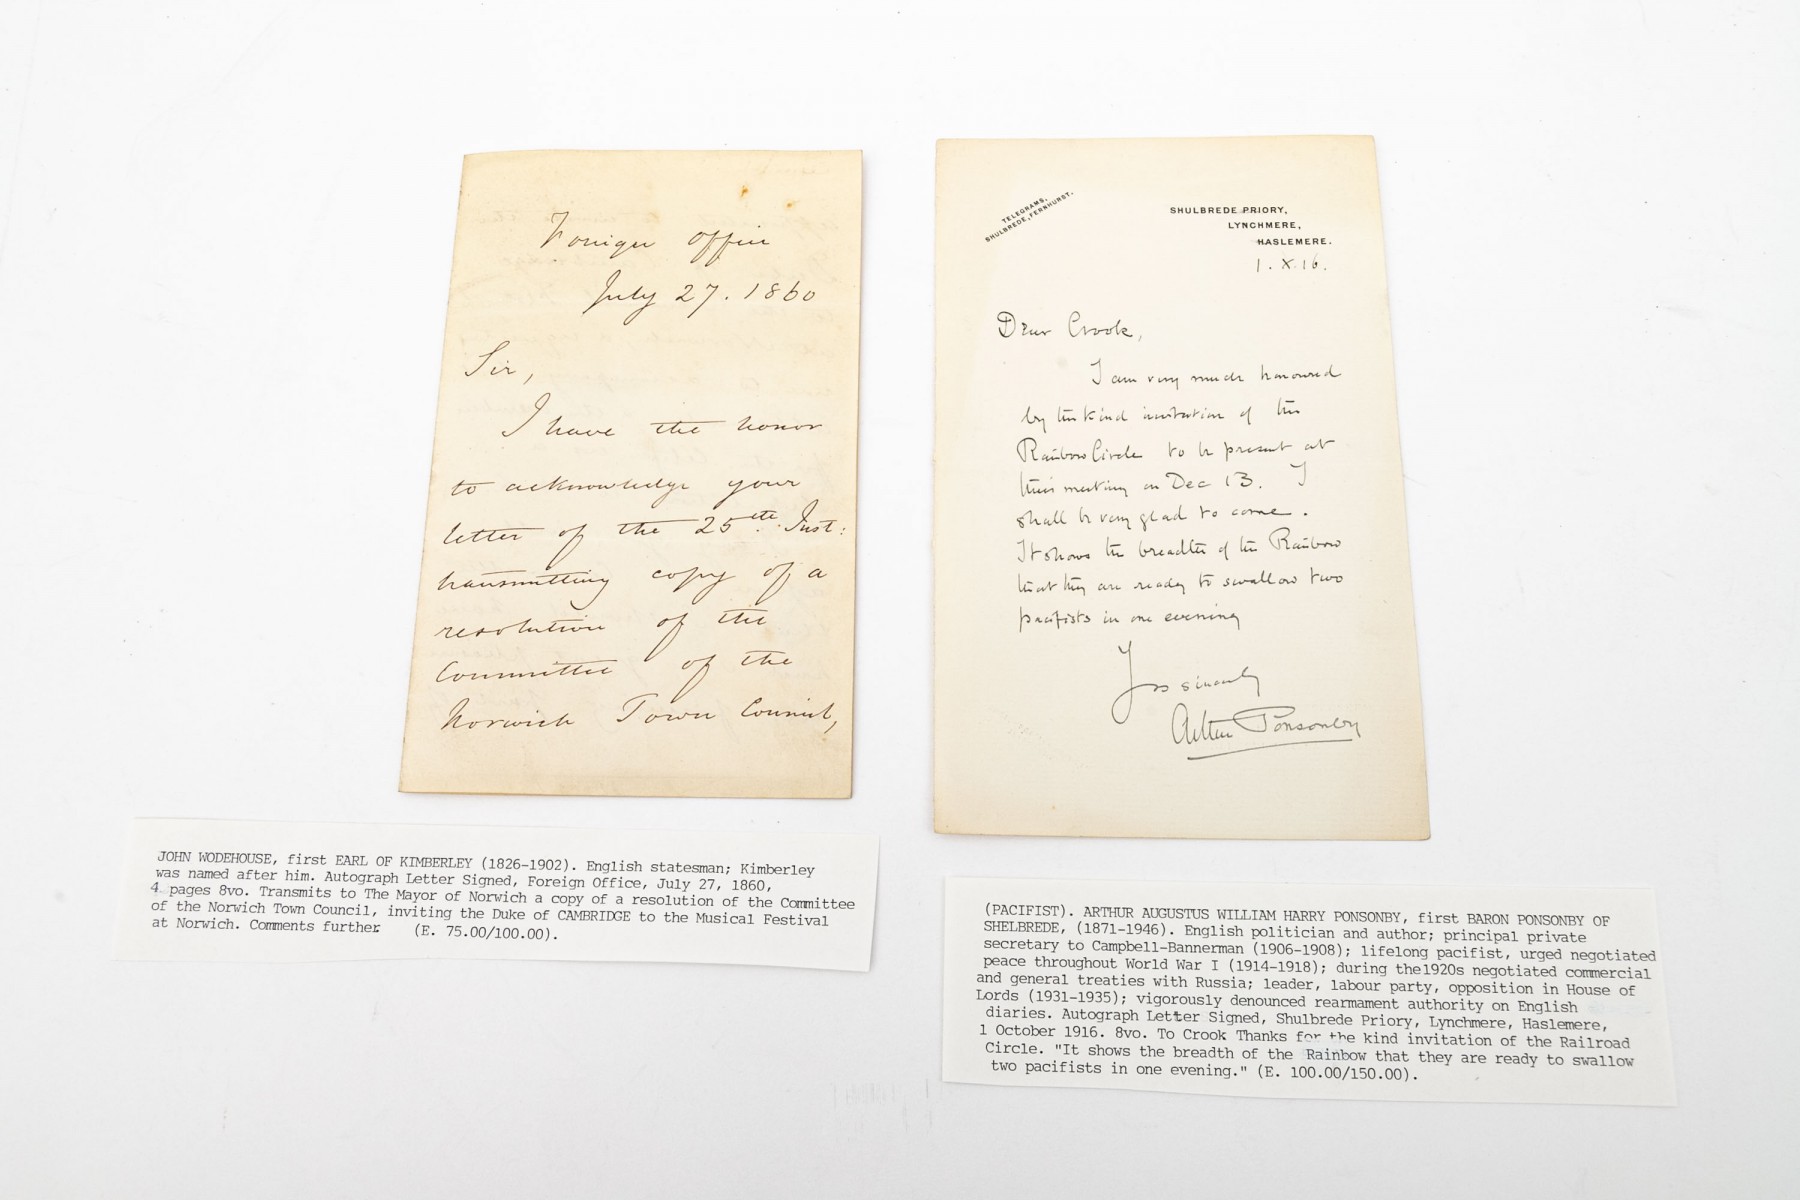 Foreign Office
July 27. 1860
Sir,
I have the honor
to acknowledge your
letter of the 25th. Inst:
transmitting copy of a
resolution of the
Committee of the
Norwich Town Council,
TELEGRAMS,
SHULBREDE, FERNHURST.
SHULBREDE PRIORY,
LYNCHMERE,
HASLEMERE.
1. X. 16.
Dear Crook,
I am very much honoured
by the kind invitation of the
Rainbow Circle to be present at
their meeting on Dec 13. I
shall be very glad to come.
It shows the breadth of the Rainbow
that they are ready to swallow two
pacifists in one evening
Yrs sincerely
Arthur Ponsonby
JOHN WODEHOUSE, first EARL OF KIMBERLEY (1826-1902). English statesman; Kimberley
was named after him. Autograph Letter Signed, Foreign Office, July 27, 1860,
4 pages 8vo. Transmits to The Mayor of Norwich a copy of a resolution of the Committee
of the Norwich Town Council, inviting the Duke of CAMBRIDGE to the Musical Festival
at Norwich. Comments further. (E. 75.00/100.00).
(PACIFIST). ARTHUR AUGUSTUS WILLIAM HARRY PONSONBY, first BARON PONSONBY OF
SHELBREDE, (1871-1946). English politician and author; principal private
secretary to Campbell-Bannerman (1906-1908); lifelong pacifist, urged negotiated
peace throughout World War I (1914-1918); during the1920s negotiated commercial
and general treaties with Russia; leader, labour party, opposition in House of
Lords (1931-1935); vigorously denounced rearmament authority on English
diaries. Autograph Letter Signed, Shulbrede Priory, Lynchmere, Haslemere,
1 October 1916. 8vo. To Crook Thanks for the kind invitation of the Railroad
Circle. "It shows the breadth of the Rainbow that they are ready to swallow
two pacifists in one evening." (E. 100.00/150.00).